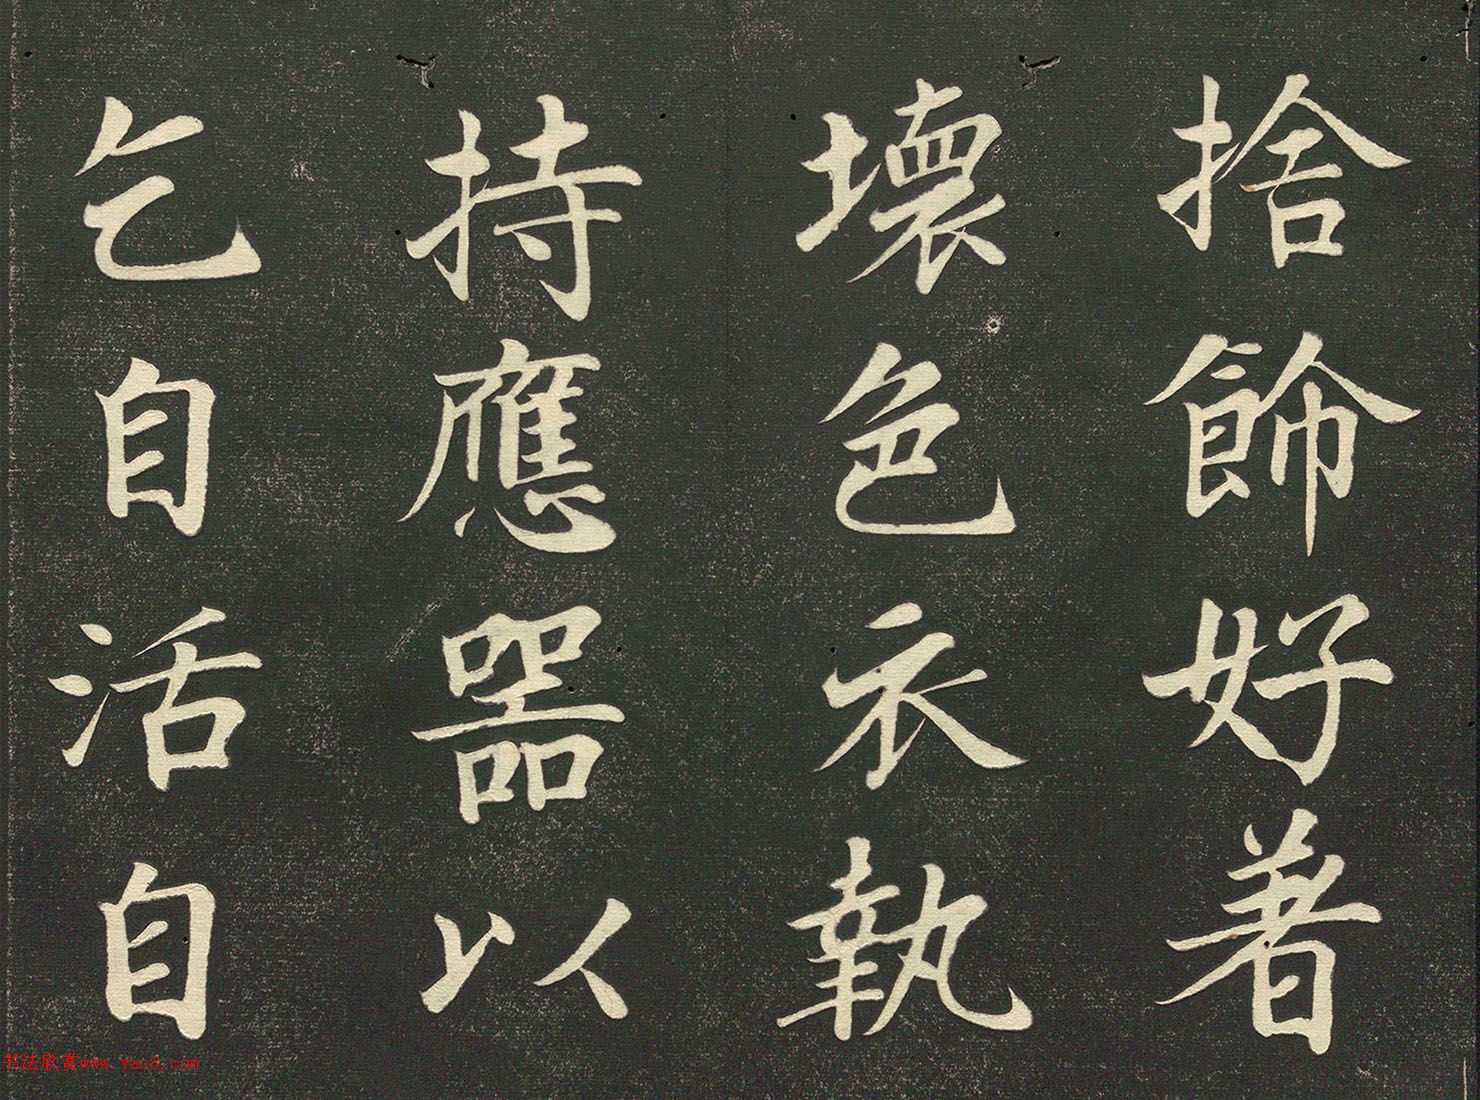 捨飾好著
壞色衣執
持應器以
乞自活自
书法欣赏www.yac8.com